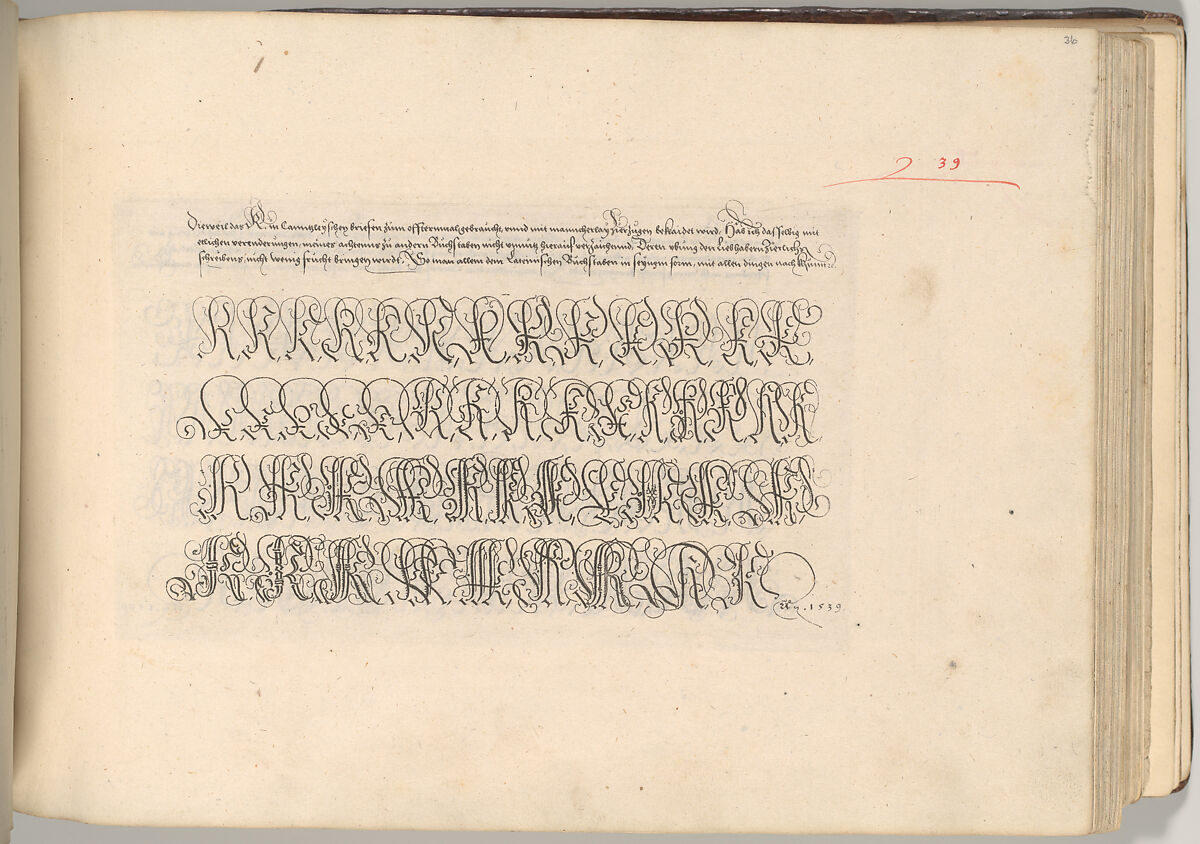 36
39
Dieweil das R. in Cantzleyschen briefen zum offtermal gebraucht, vnnd mit mancherlay Zierzügen bekleidet wird. Hab ich dasselbig mit
etlichen verenderungen, meines achtenns zu andern Buchstaben nicht vnnütz hierauf verzaichend, Deren vbung den Liebhabern Zierlichs
schreibens, nicht wenig frücht bringen wirdt. So man allein dem Lateinischen Buchstaben in seynem form, mit allen dingen nach
R R R R R R R R R R R R R
R R R R R R R R R R R R R R
R R R R R R R R R R R
R R R R R R R R R
An. 1539.